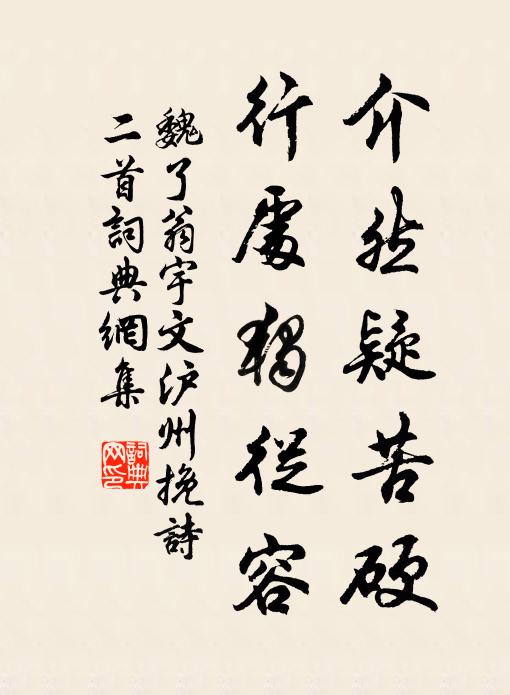 介然疑苦硬
行處獨從容
魏了翁宇文泸州挽詩
二首詞典網集
詞典
网印